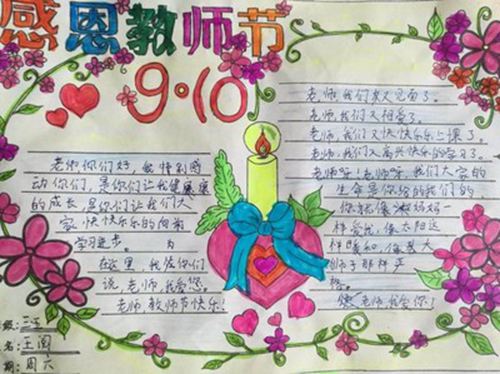 感恩教师节
9·10
老师,你们好,我特别感
动你们,是你们让我健康
的成长,是你们让我们大
家快快乐乐的向前
学习进步。为
在这里,我代你们
说,老师,我爱您,
老师,教师节快乐!
老师,我们又见面了。
老师,我们又相爱了。
老师,我们又快快乐乐上课了。
老师,我们又高兴快乐的学习了。
老师呀!老师呀,我们大家的
生命是你给的我们的
你就像妈妈一
样爱我,像太阳这
样暖和,像
师子那样严
老师,我爱你!
级:三
名:王阁
期:周六